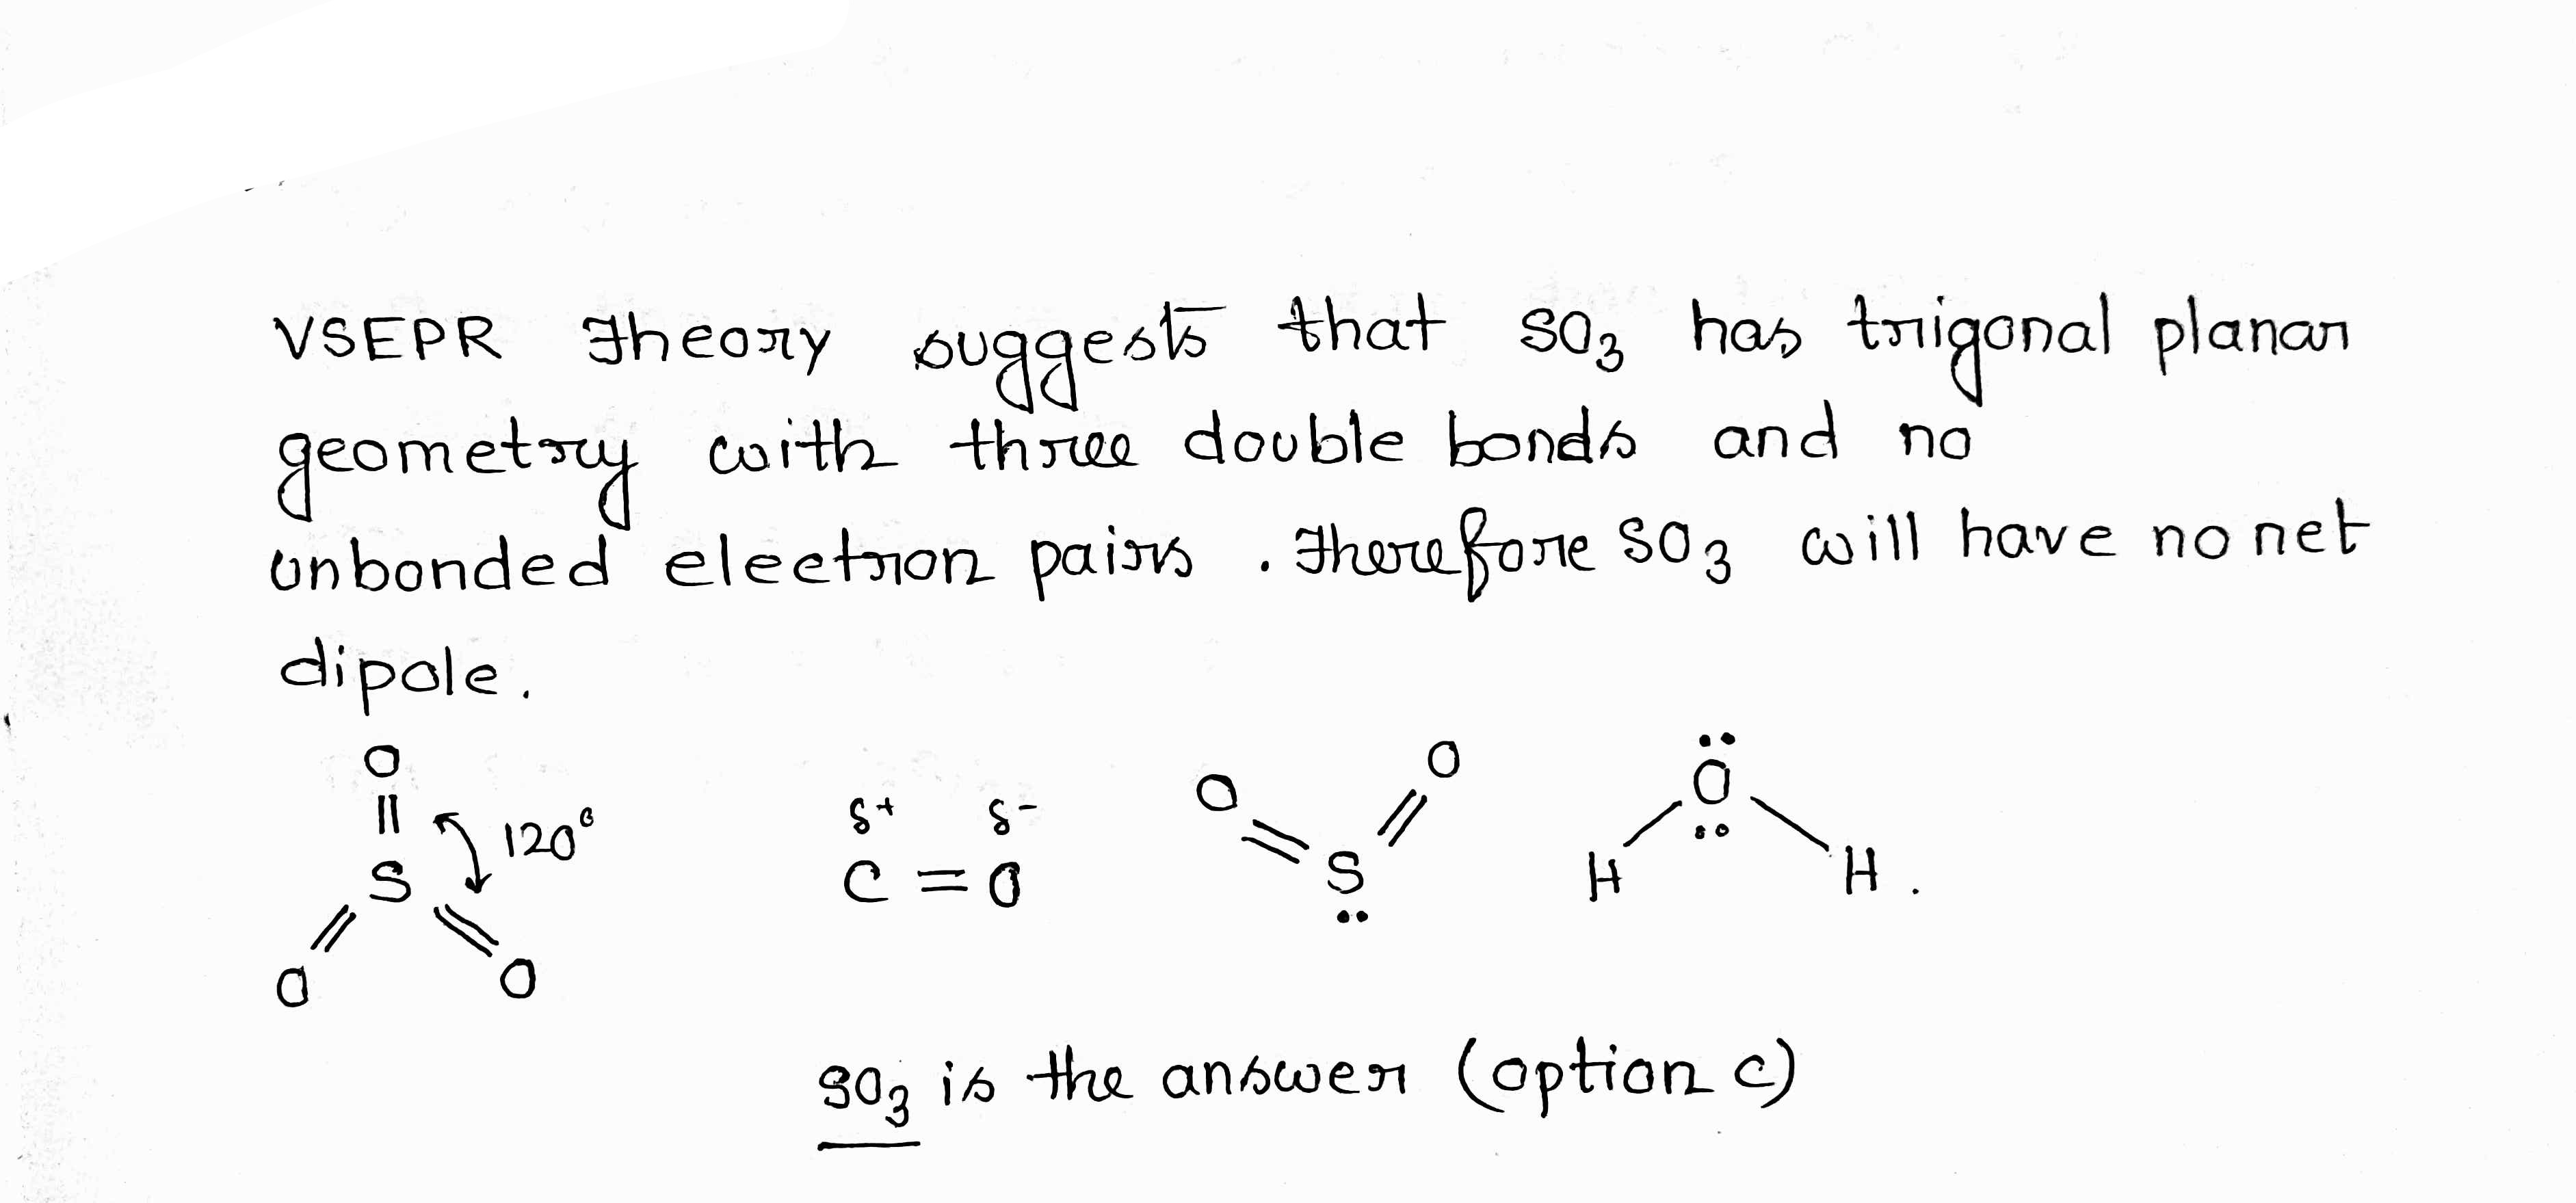 VSEPR Theory suggests that SO₃ has trigonal planar
geometry with three double bonds and no
unbonded electron pairs . Therefore SO₃ will have no net
dipole.
O
||
S 120°
O O
δ+ δ-
C = O
O O
S
H O H .
SO₃ is the answer (option c)